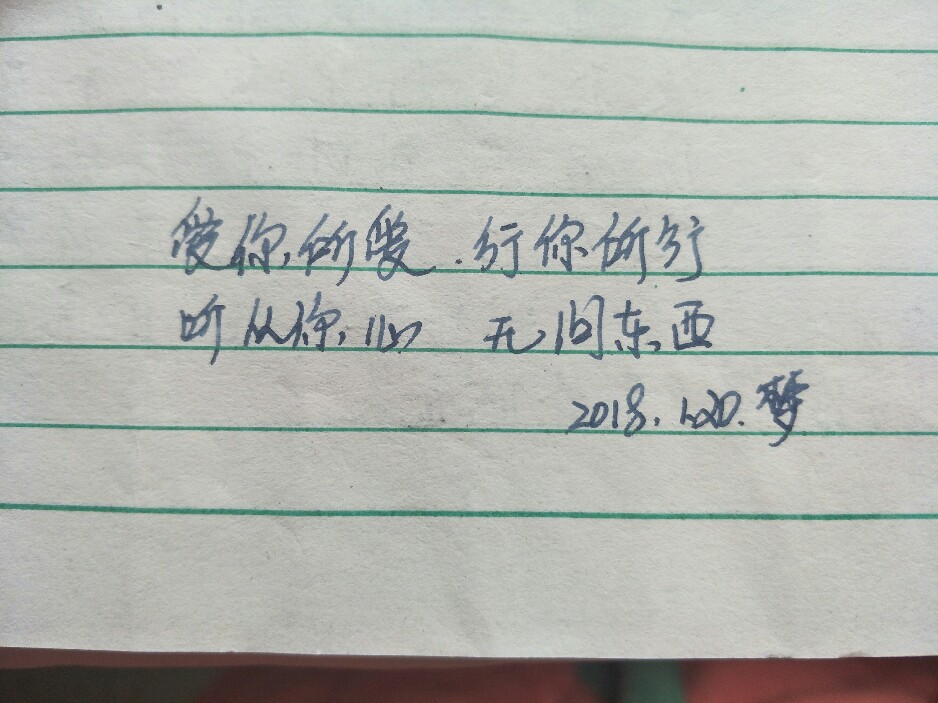 爱你所爱.行你所行
听从你心 无问东西
2018.1.20.梦